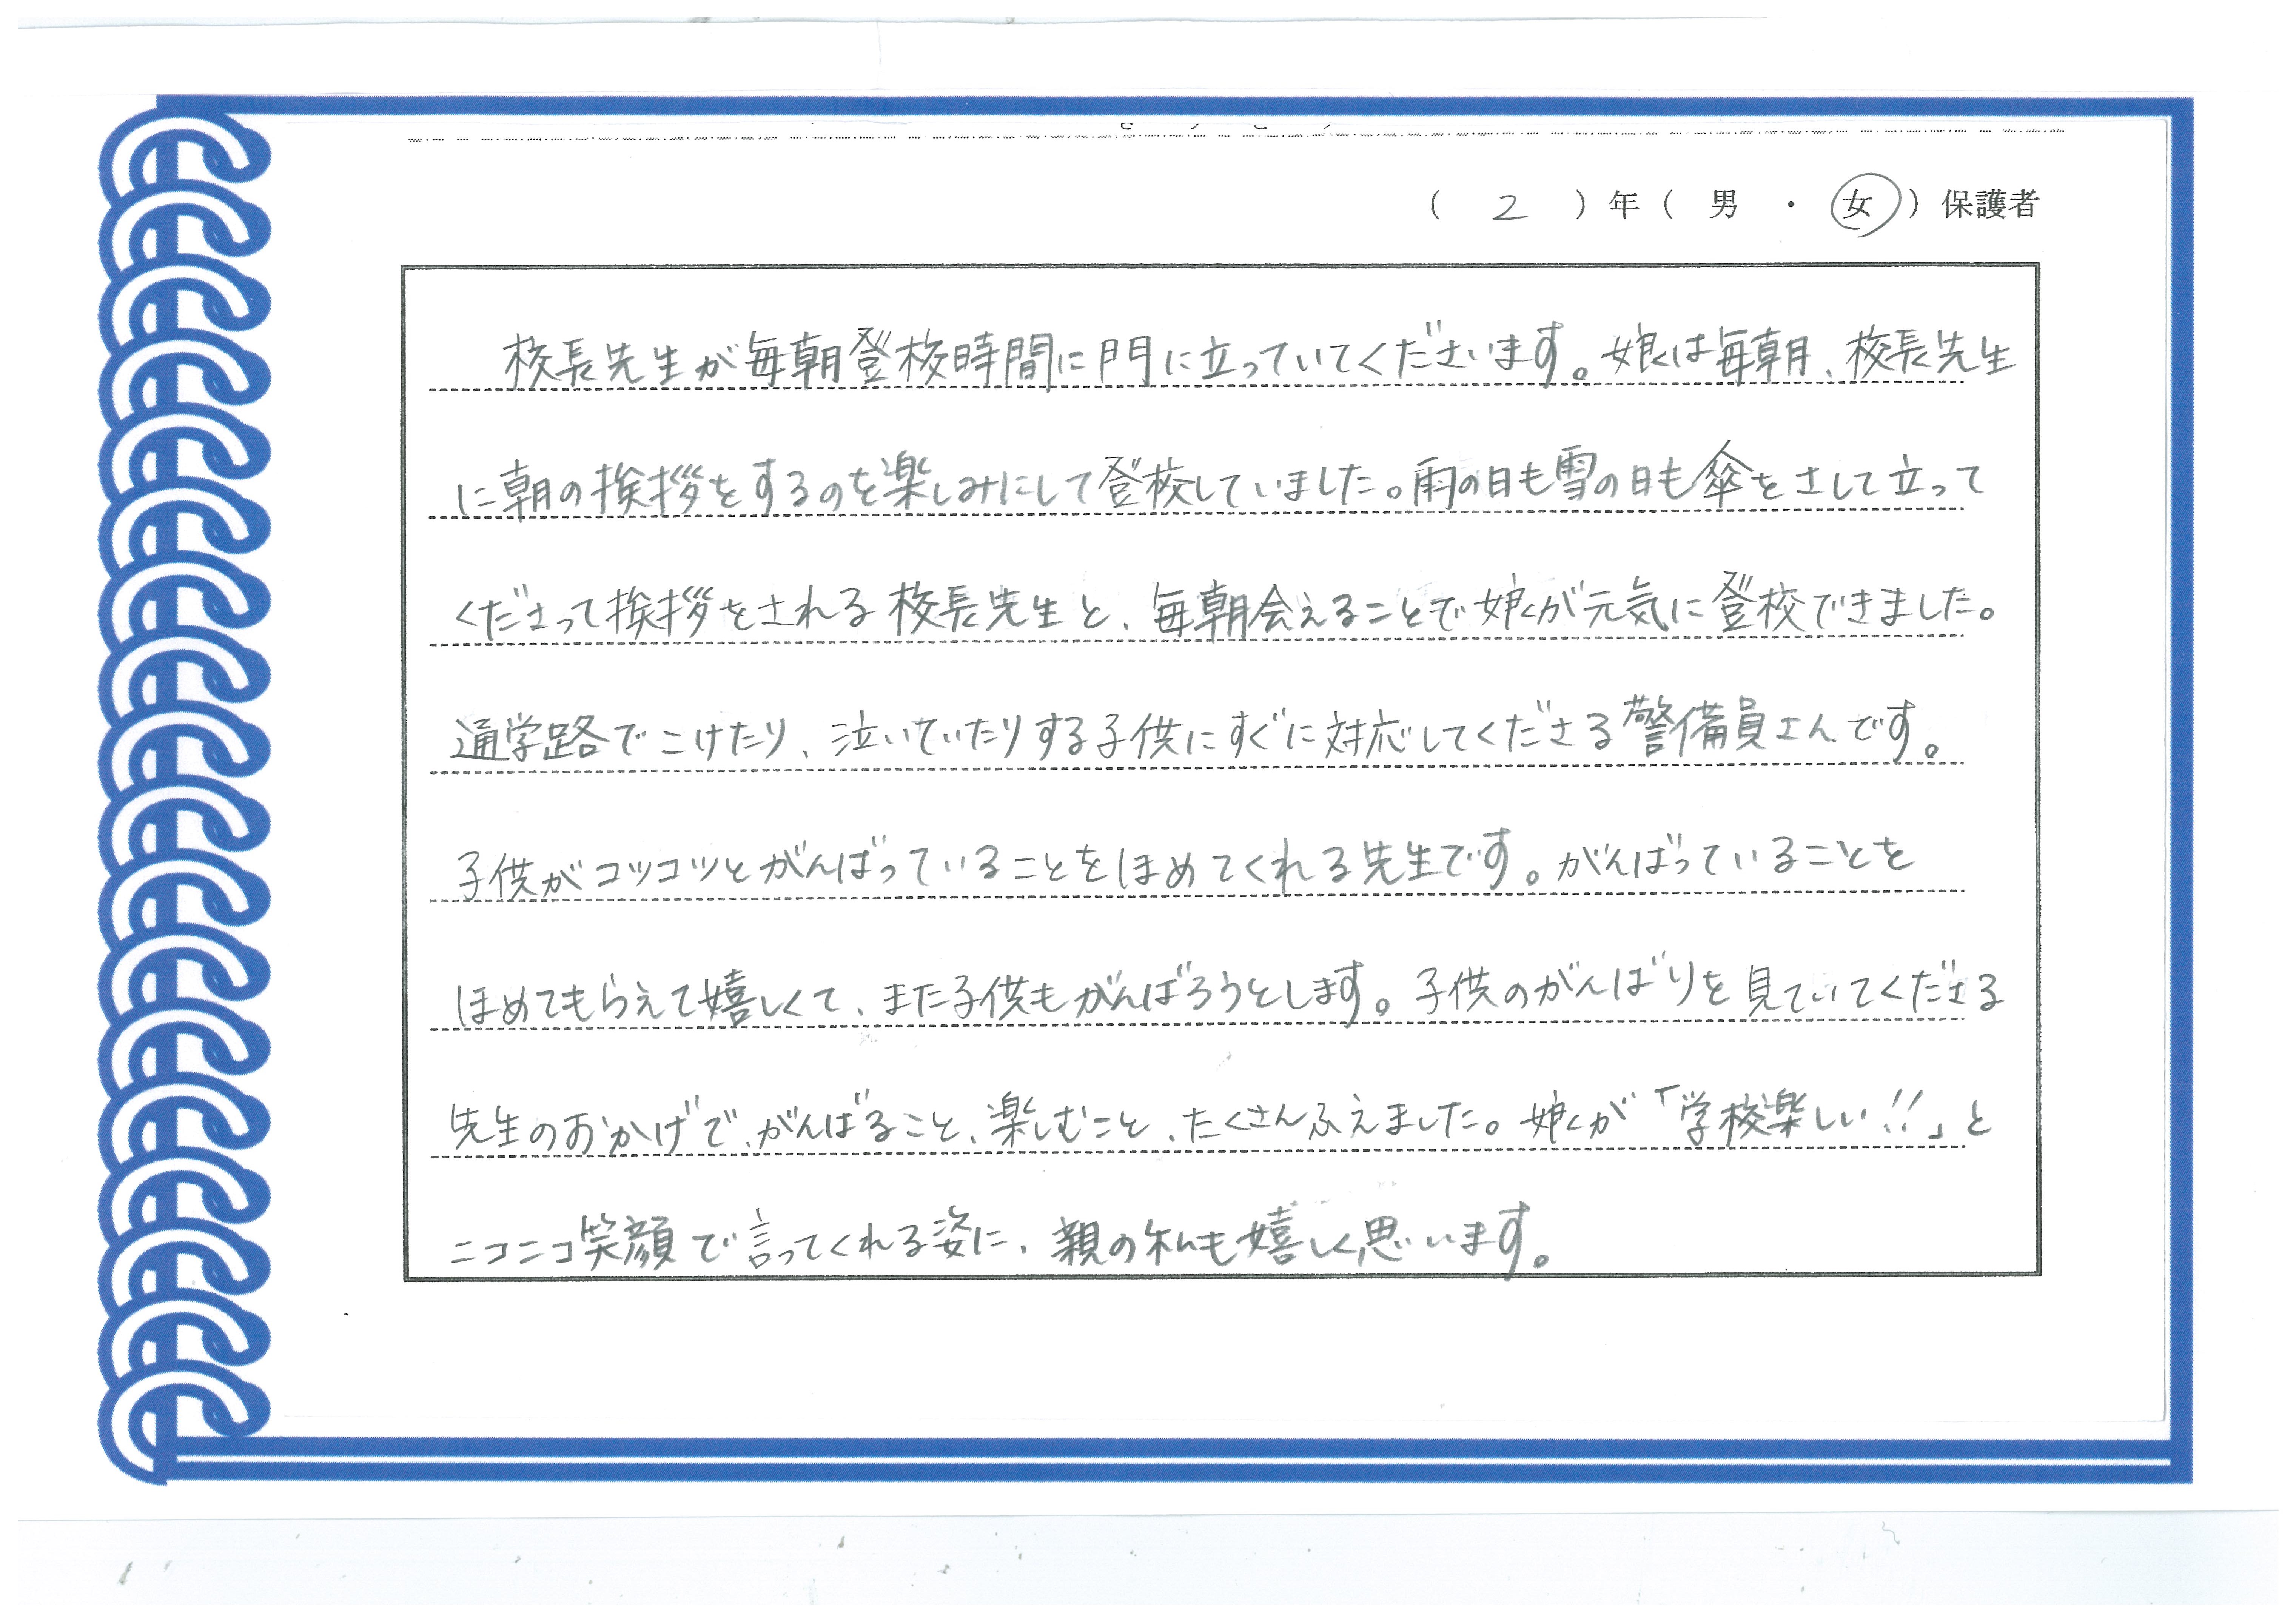 ( 2 ) 年 ( 男 ・ 女 ) 保護者
校長先生が毎朝登校時間に門に立っていてくださいます。娘は毎朝、校長先生
に朝の挨拶をするのを楽しみにして登校していました。雨の日も雪の日も傘をさして立って
くださって挨拶をされる校長先生と、毎朝会えることで娘が元気に登校できました。
通学路でこけたり、泣いていたりする子供にすぐに対応してくださる警備員さんです。
子供がコツコツとがんばっていることをほめてくれる先生です。がんばっていることを
ほめてもらえて嬉しくて、また子供もがんばろうとします。子供のがんばりを見ていてくださる
先生のおかげで、がんばること、楽しむこと、たくさんふえました。娘が「学校楽しい!!」と
ニコニコ笑顔で言ってくれる姿に、親の私も嬉しく思います。